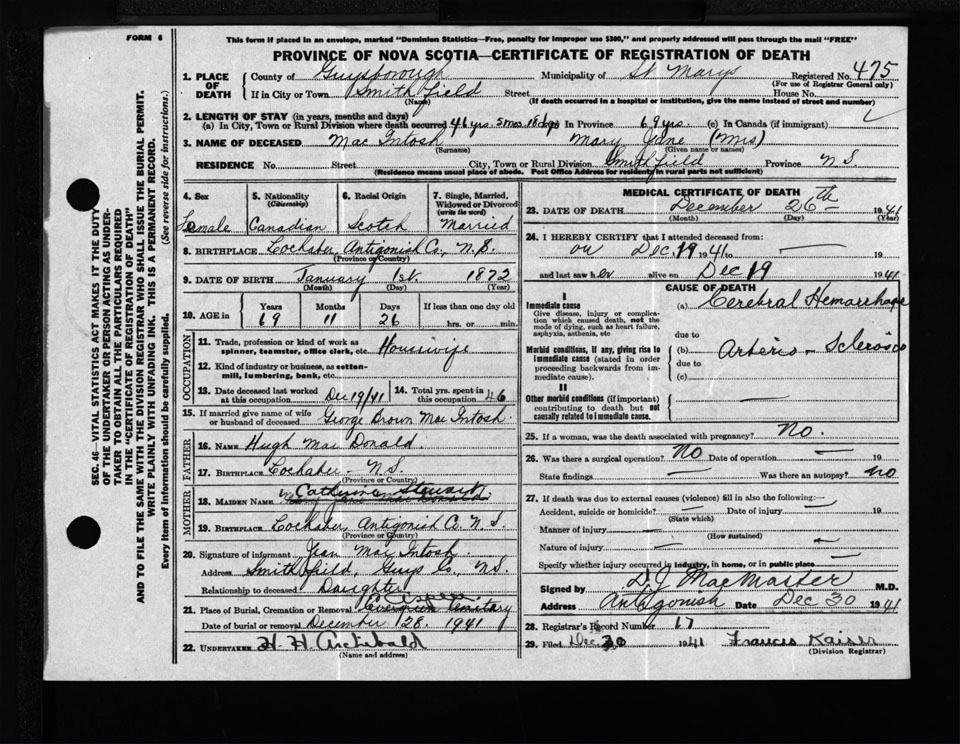 FORM 6
This form if placed in an envelope, marked "Dominion Statistics—Free, penalty for improper use $300," and properly addressed will pass through the mail "FREE"
PROVINCE OF NOVA SCOTIA—CERTIFICATE OF REGISTRATION OF DEATH
1. PLACE OF DEATH County of Guysborough Municipality of St Marys Registered No. 475
(For use of Registrar General only)
If in City or Town Smith Field Street House No.
(Name) (If death occurred in a hospital or institution, give the name instead of street and number)
2. LENGTH OF STAY (in years, months and days)
(a) In City, Town or Rural Division where death occurred 46 yrs. 5 mos. 18 dys In Province 69 yrs. (c) In Canada (if immigrant)
3. NAME OF DECEASED Mac Intosh Mary Jane (Mrs)
(Surname) (Given name or names)
RESIDENCE No. Street City, Town or Rural Division Smithfield Province N.S.
(Residence means usual place of abode. Post Office Address for residents in rural parts not sufficient)
4. Sex 5. Nationality (Citizenship) 6. Racial Origin 7. Single, Married, Widowed or Divorced (write the word)
Female Canadian Scotch Married
8. BIRTHPLACE Lochaber, Antigonish Co., N.S.
(Province or Country)
9. DATE OF BIRTH January 1st. 1872
(Month) (Day) (Year)
10. AGE in Years Months Days If less than one day old
69 11 26 hrs. or min.
OCCUPATION
11. Trade, profession or kind of work as spinner, teamster, office clerk, etc. Housewife
12. Kind of industry or business, as cotton-mill, lumbering, bank, etc.
13. Date deceased last worked at this occupation Dec 19/41 14. Total yrs. spent in this occupation 46
15. If married give name of wife or husband of deceased George Brown Mac Intosh.
FATHER
16. NAME Hugh Mac Donald.
17. BIRTHPLACE Lochaber - N.S.
(Province or Country)
MOTHER
18. MAIDEN NAME Catherine Stewart
19. BIRTHPLACE Lochaber, Antigonish Co. N.S.
(Province or Country)
20. Signature of informant Jean Mac Intosh.
Address Smithfield, Guys Co., N.S.
Relationship to deceased Daughter
21. Place of Burial, Cremation or Removal Evergreen Cemitary
Date of burial or removal December 28. 1941
22. UNDERTAKER H. H Archibald
(Name and address)
MEDICAL CERTIFICATE OF DEATH
23. DATE OF DEATH December 26th 1941
(Month) (Day) (Year)
24. I HEREBY CERTIFY that I attended deceased from:
on Dec. 19 1941 to — 19
and last saw her alive on Dec 19 1941
CAUSE OF DEATH
I
Immediate cause (a) Cerebral Hemarrhage
Give disease, injury or complication which caused death, not the mode of dying, such as heart failure, asphyxia, asthenia, etc
due to
Morbid conditions, if any, giving rise to immediate cause (stated in order proceeding backwards from immediate cause). (b) Arterio - Sclerosis
due to
(c)
II
Other morbid conditions (if important) contributing to death but not causally related to immediate cause.
25. If a woman, was the death associated with pregnancy? No.
26. Was there a surgical operation? No Date of operation — 19
State findings — Was there an autopsy? no
27. If death was due to external causes (violence) fill in also the following:—
Accident, suicide or homicide? — Date of injury — 19
(State which)
Manner of injury —
(How sustained)
Nature of injury —
Specify whether injury occurred in industry, in home, or in public place
Signed by D. J. MacMaster M.D.
Address Antigonish Date Dec 30 1941
28. Registrar's Record Number 17
29. Filed Dec. 30 1941 Frances Kaiser
(Division Registrar)
SEC. 46—VITAL STATISTICS ACT MAKES IT THE DUTY
OF THE UNDERTAKER OR PERSON ACTING AS UNDER-
TAKER TO OBTAIN ALL THE PARTICULARS REQUIRED
IN THE "CERTIFICATE OF REGISTRATION OF DEATH"
AND TO FILE THE SAME WITH THE DIVISION REGISTRAR WHO SHALL ISSUE THE BURIAL PERMIT.
WRITE PLAINLY WITH UNFADING INK. THIS IS A PERMANENT RECORD.
Every item of information should be carefully supplied. (See reverse side for instructions.)